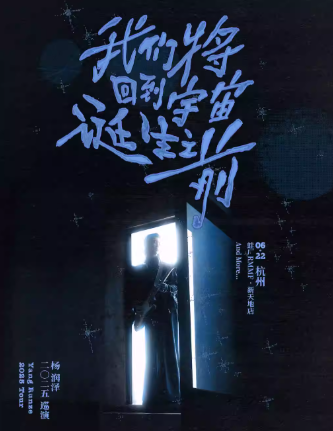 我们将
回到宇宙
诞生之前
06.22 杭州
RMMF·新天地店
And More...
杨润泽
二〇二五 巡演
Yang Runze
2025 Tour